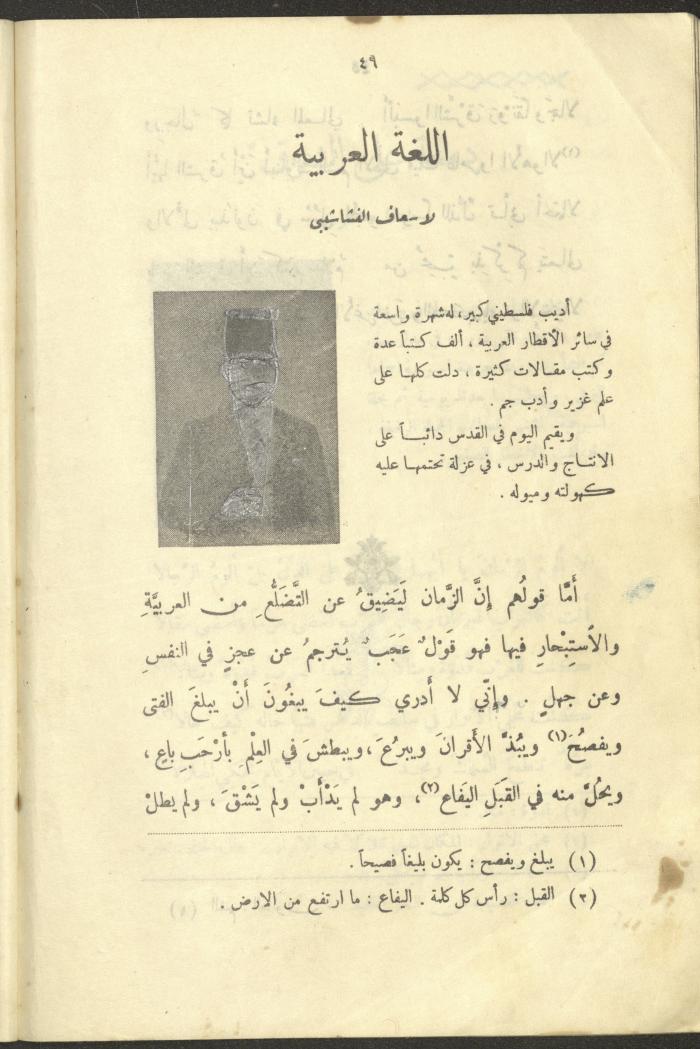 ٤٩
اللغة العربية
لاسعاف النشاشيبي
أديب فلسطيني كبير، له شهرة واسعة
في سائر الأقطار العربية ، ألف كتباً عدة
وكتب مقالات كثيرة ، دلت كلها على
علم غزير وأدب جم .
ويقيم اليوم في القدس دائباً على
الانتاج والدرس ، في عزلة تحتمها عليه
كهولته وميوله .
أَمَّا قولُهم إِنَّ الزَّمان لَيَضِيقُ عن التَّضَلُّعِ من العربيَّةِ
والاُستِبْحارِ فيها فهو قَوْلٌ عَجَبٌ يُترجمُ عن عجزٍ في النفسِ
وعن جهلٍ . وإِنّي لا أَدري كيفَ يبغُونَ أَنْ يبلغَ الفتى
ويفصُحَ(١) ويَبُذَّ الأَقرانَ ويبرُعَ ، ويبطشَ في العِلْمِ بأَرْحَبِ باعٍ ،
ويحُلَّ منه في القَبَلِ اليَفاع(٢) ، وهو لم يَدْأَبْ ولم يَشْقَ ، ولم يطلْ
(١) يبلغ ويفصح : يكون بليغاً فصيحاً .
(٢) القبل : رأس كل كلمة . اليفاع : ما ارتفع من الارض .